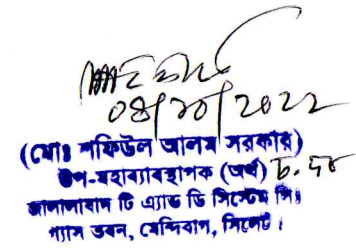 ০৪/১০/২০২২
(মোঃ শফিউল আলম সরকার)
উপ-মহাব্যাবস্থাপক (অর্থ) চ. দা
জালালাবাদ টি এ্যান্ড ডি সিস্টেম লিঃ
গ্যাস ভবন, মেন্দিবাগ, সিলেট।